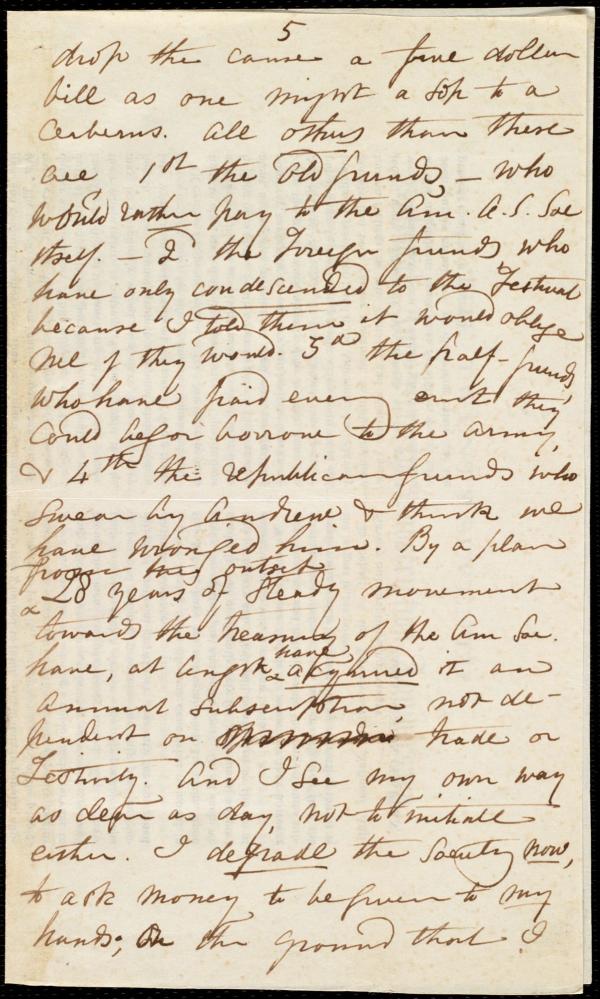 5
drop the cause a five dollar
bill as one might a sop to a
Cerberus. All others than these
are, 1st the Old friends, – who
would rather pay to the Am. A. S. Soc
itself. – 2d the Foreign friends, who
have only condescended to the Festival
because I told them it would oblige
me if they would. 3d the half-friends,
who have paid every cent they
could beg or borrow to the army,
& 4th the republican friends who
swear by Andrew & think we
have wronged him. By a plan
from the outset
& 28 years of steady movement
towards the treasury of the Am Soc.
have, at length, have & acquired it an
annual subscription, not de-
pendent on trade or
Festivity. And I see my own way
as clear as day, not to initiate
either. I degrade the Society now,
to ask money to be given to my
hands; on the ground that I